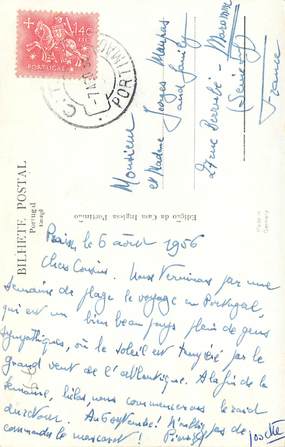 1$40
PORTUGAL
PORTI
BILHETE POSTAL
Portugal
Edição da Casa Inglesa Portimão
Made in
Germany
Monsieur
et Madame Georges
and family
27 rue
Maromme
(Seine
France
le 6 août 1956
Chers Cousins. Nous terminons par une
semaine de plage le voyage en Portugal,
qui est un bien beau pays plein de gens
sympathiques, où le soleil est tempéré par le
grand vent de l'atlantique. A la fin de la
semaine, hélas nous commencerons le raid
du retour. Au N'oubliez pas de
commander le mascaret!
Josette